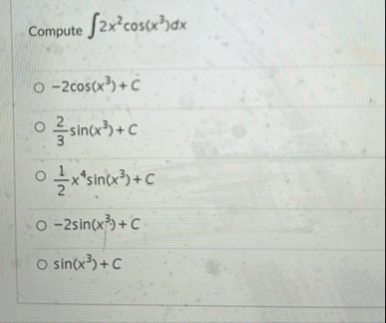 Compute ∫2x²cos(x³)dx
-2cos(x³)+C
2/3 sin(x³)+C
1/2 x⁴sin(x³)+C
-2sin(x³)+C
sin(x³)+C